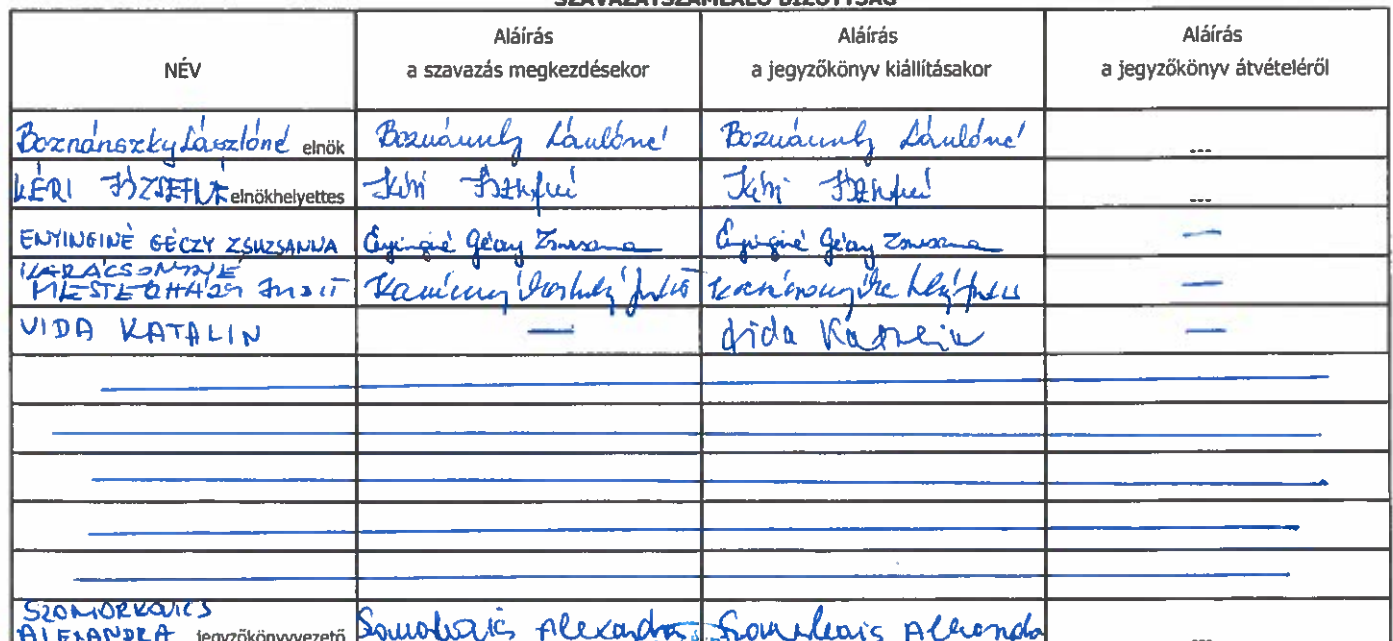 SZAVAZATSZÁMLÁLÓ BIZOTTSÁG
NÉV
Aláírás
a szavazás megkezdésekor
Aláírás
a jegyzőkönyv kiállításakor
Aláírás
a jegyzőkönyv átvételéről
Boznánszky Lászlóné elnök Boznánszky Lászlóné Boznánszky Lászlóné ---
KÉRI JÓZSEFNÉ elnökhelyettes Kéri Józsefné Kéri Józsefné ---
ENYINGINÉ GÉCZY ZSUZSANNA Enyinginé Géczy Zsuzsanna Enyinginé Géczy Zsuzsanna —
KARÁCSONYNÉ
MESTERHÁZY JUDIT —
VIDA KATALIN — Vida Katalin —
SZOMORKOVICS
ALEXANDRA jegyzőkönyvvezető Szomorkovics Alexandra Szomorkovics Alexandra ---